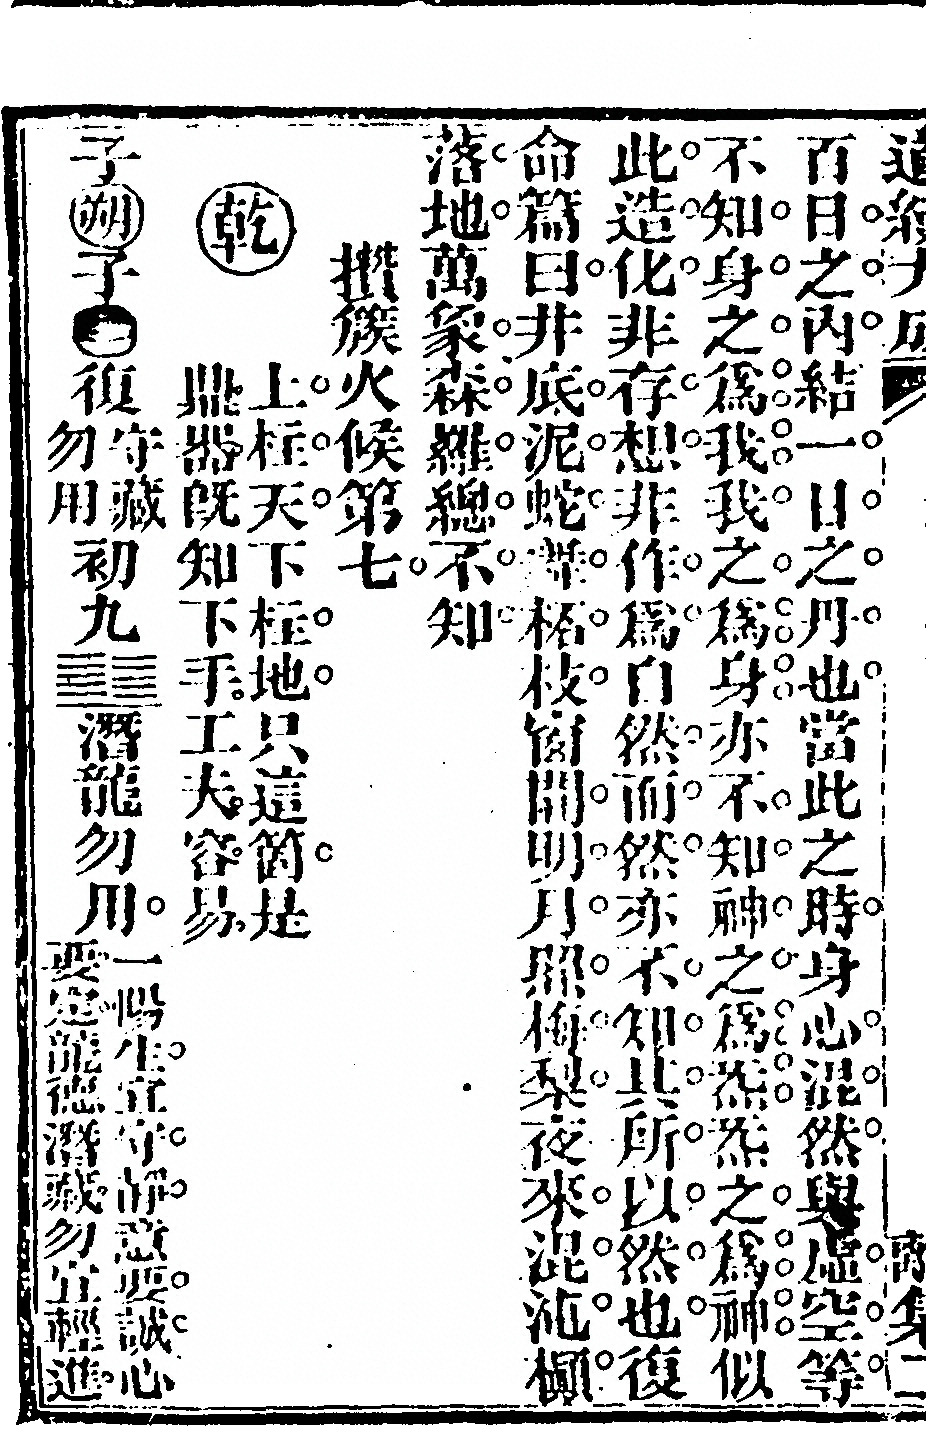 百日之內結一日之丹也當此之時身心混然與虛空等
不知身之爲我我之爲身亦不知神之爲炁炁之爲神似
此造化非存想非作爲自然而然亦不知其所以然也復
命篇曰井底泥蛇舞柘枝窗間明月照梅梨夜來混沌顚
落地萬象森羅總不知
攢簇火候第七
乾
上柱天下柱地只這箇是
鼎器旣知下手工夫容易
子朔子
復
守藏
勿用
初九
潛龍勿用
一陽生宜守靜意要誠心
要定龍德潛藏勿宜輕進